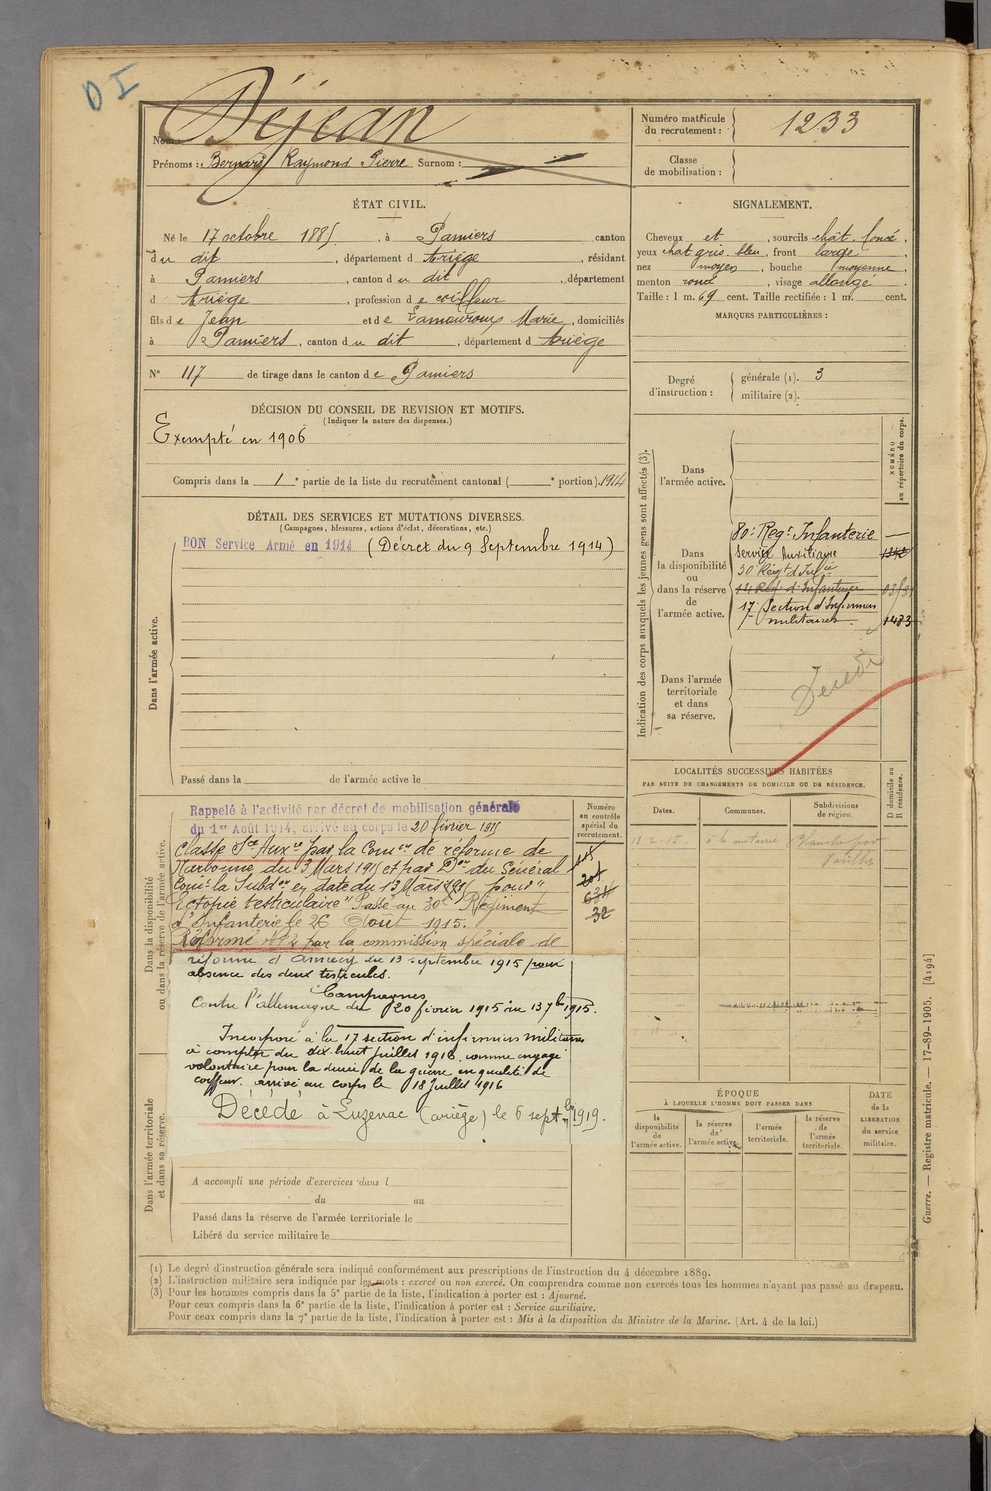 DI
Nom : Déjean
Prénoms : Bernard Raymond Pierre Surnom :
Numéro matricule du recrutement : 1233
Classe de mobilisation :
ÉTAT CIVIL.
Né le 17 octobre 1885, à Pamiers canton
du dit, département d Ariège, résidant
à Pamiers, canton du dit, département
d Ariège, profession de coiffeur
fils de Jean et de Lamouroux Marie, domiciliés
à Pamiers, canton du dit, département d Ariège
N° 117 de tirage dans le canton de Pamiers
SIGNALEMENT.
Cheveux et, sourcils chât. foncé,
yeux chat gris bleu, front large,
nez moyen, bouche moyenne,
menton rond, visage allongé
Taille : 1 m. 69 cent. Taille rectifiée : 1 m. cent.
MARQUES PARTICULIÈRES :
Degré d'instruction :
générale (1). 3
militaire (2).
DÉCISION DU CONSEIL DE REVISION ET MOTIFS.
(Indiquer la nature des dispenses.)
Exempté en 1906
Compris dans la 1e partie de la liste du recrutement cantonal ( e portion). 1914
DÉTAIL DES SERVICES ET MUTATIONS DIVERSES.
(Campagnes, blessures, actions d'éclat, décorations, etc.)
BON Service Armé en 1914 (Décret du 9 Septembre 1914)
Dans l'armée active.
Passé dans la de l'armée active le
Indication des corps auxquels les jeunes gens sont affectés (3).
NUMÉRO au répertoire du corps.
Dans l'armée active.
Dans la disponibilité ou dans la réserve de l'armée active.
80e Regt Infanterie
Service Auxiliaire
30 Régt d'Infie
14 Reg. d'Infanterie
17 Section d'Infirmiers
militaires
1433
Dans l'armée territoriale et dans sa réserve.
Décédé
Dans la disponibilité ou dans la réserve de l'armée active.
Rappelé à l'activité par décret de mobilisation générale
du 1er Août 1914, arrivé au corps le 20 février 1915
Classé Sce Auxre par la Comon de réforme de
Narbonne du 3 Mars 1915 et par Don du Général
Comt la Subdon en date du 13 Mars 1915 pour "
Ectopie testiculaire" Passé au 30e Régiment
d'Infanterie le 26 Août 1915.
Réformé N°2 par la commission spéciale de
réforme d'Annecy du 13 septembre 1915 pour
absence des deux testicules.
Campagnes
Contre l'allemagne du 20 février 1915 au 13 7bre 1915.
Incorporé à la 17 section d'infirmiers militaires
à compter du dix huit juillet 1916, comme engagé
volontaire pour la durée de la guerre en qualité de
coiffeur. arrivé au corps le 18 Juillet 1916
Décédé à Luzenac (ariège) le 6 septbre 1919.
Numéro au contrôle spécial du recrutement.
32
Dans l'armée territoriale et dans sa réserve.
A accompli une période d'exercices dans l
du au
Passé dans la réserve de l'armée territoriale le
Libéré du service militaire le
LOCALITÉS SUCCESSIVES HABITÉES
PAR SUITE DE CHANGEMENTS DE DOMICILE OU DE RÉSIDENCE.
Dates.
Communes.
Subdivisions de région.
D domicile ou R résidence.
ÉPOQUE
À LAQUELLE L'HOMME DOIT PASSER DANS
la disponibilité de l'armée active.
la réserve de l'armée active.
l'armée territoriale.
la réserve de l'armée territoriale.
DATE de la LIBÉRATION du service militaire.
Guerre. — Registre matricule. — 17-89-1905. [4194]
(1) Le degré d'instruction générale sera indiqué conformément aux prescriptions de l'instruction du 4 décembre 1889.
(2) L'instruction militaire sera indiquée par les mots : exercé ou non exercé. On comprendra comme non exercés tous les hommes n'ayant pas passé au drapeau.
(3) Pour les hommes compris dans la 5e partie de la liste, l'indication à porter est : Ajourné.
Pour ceux compris dans la 6e partie de la liste, l'indication à porter est : Service auxiliaire.
Pour ceux compris dans la 7e partie de la liste, l'indication à porter est : Mis à la disposition du Ministre de la Marine. (Art. 4 de la loi.)